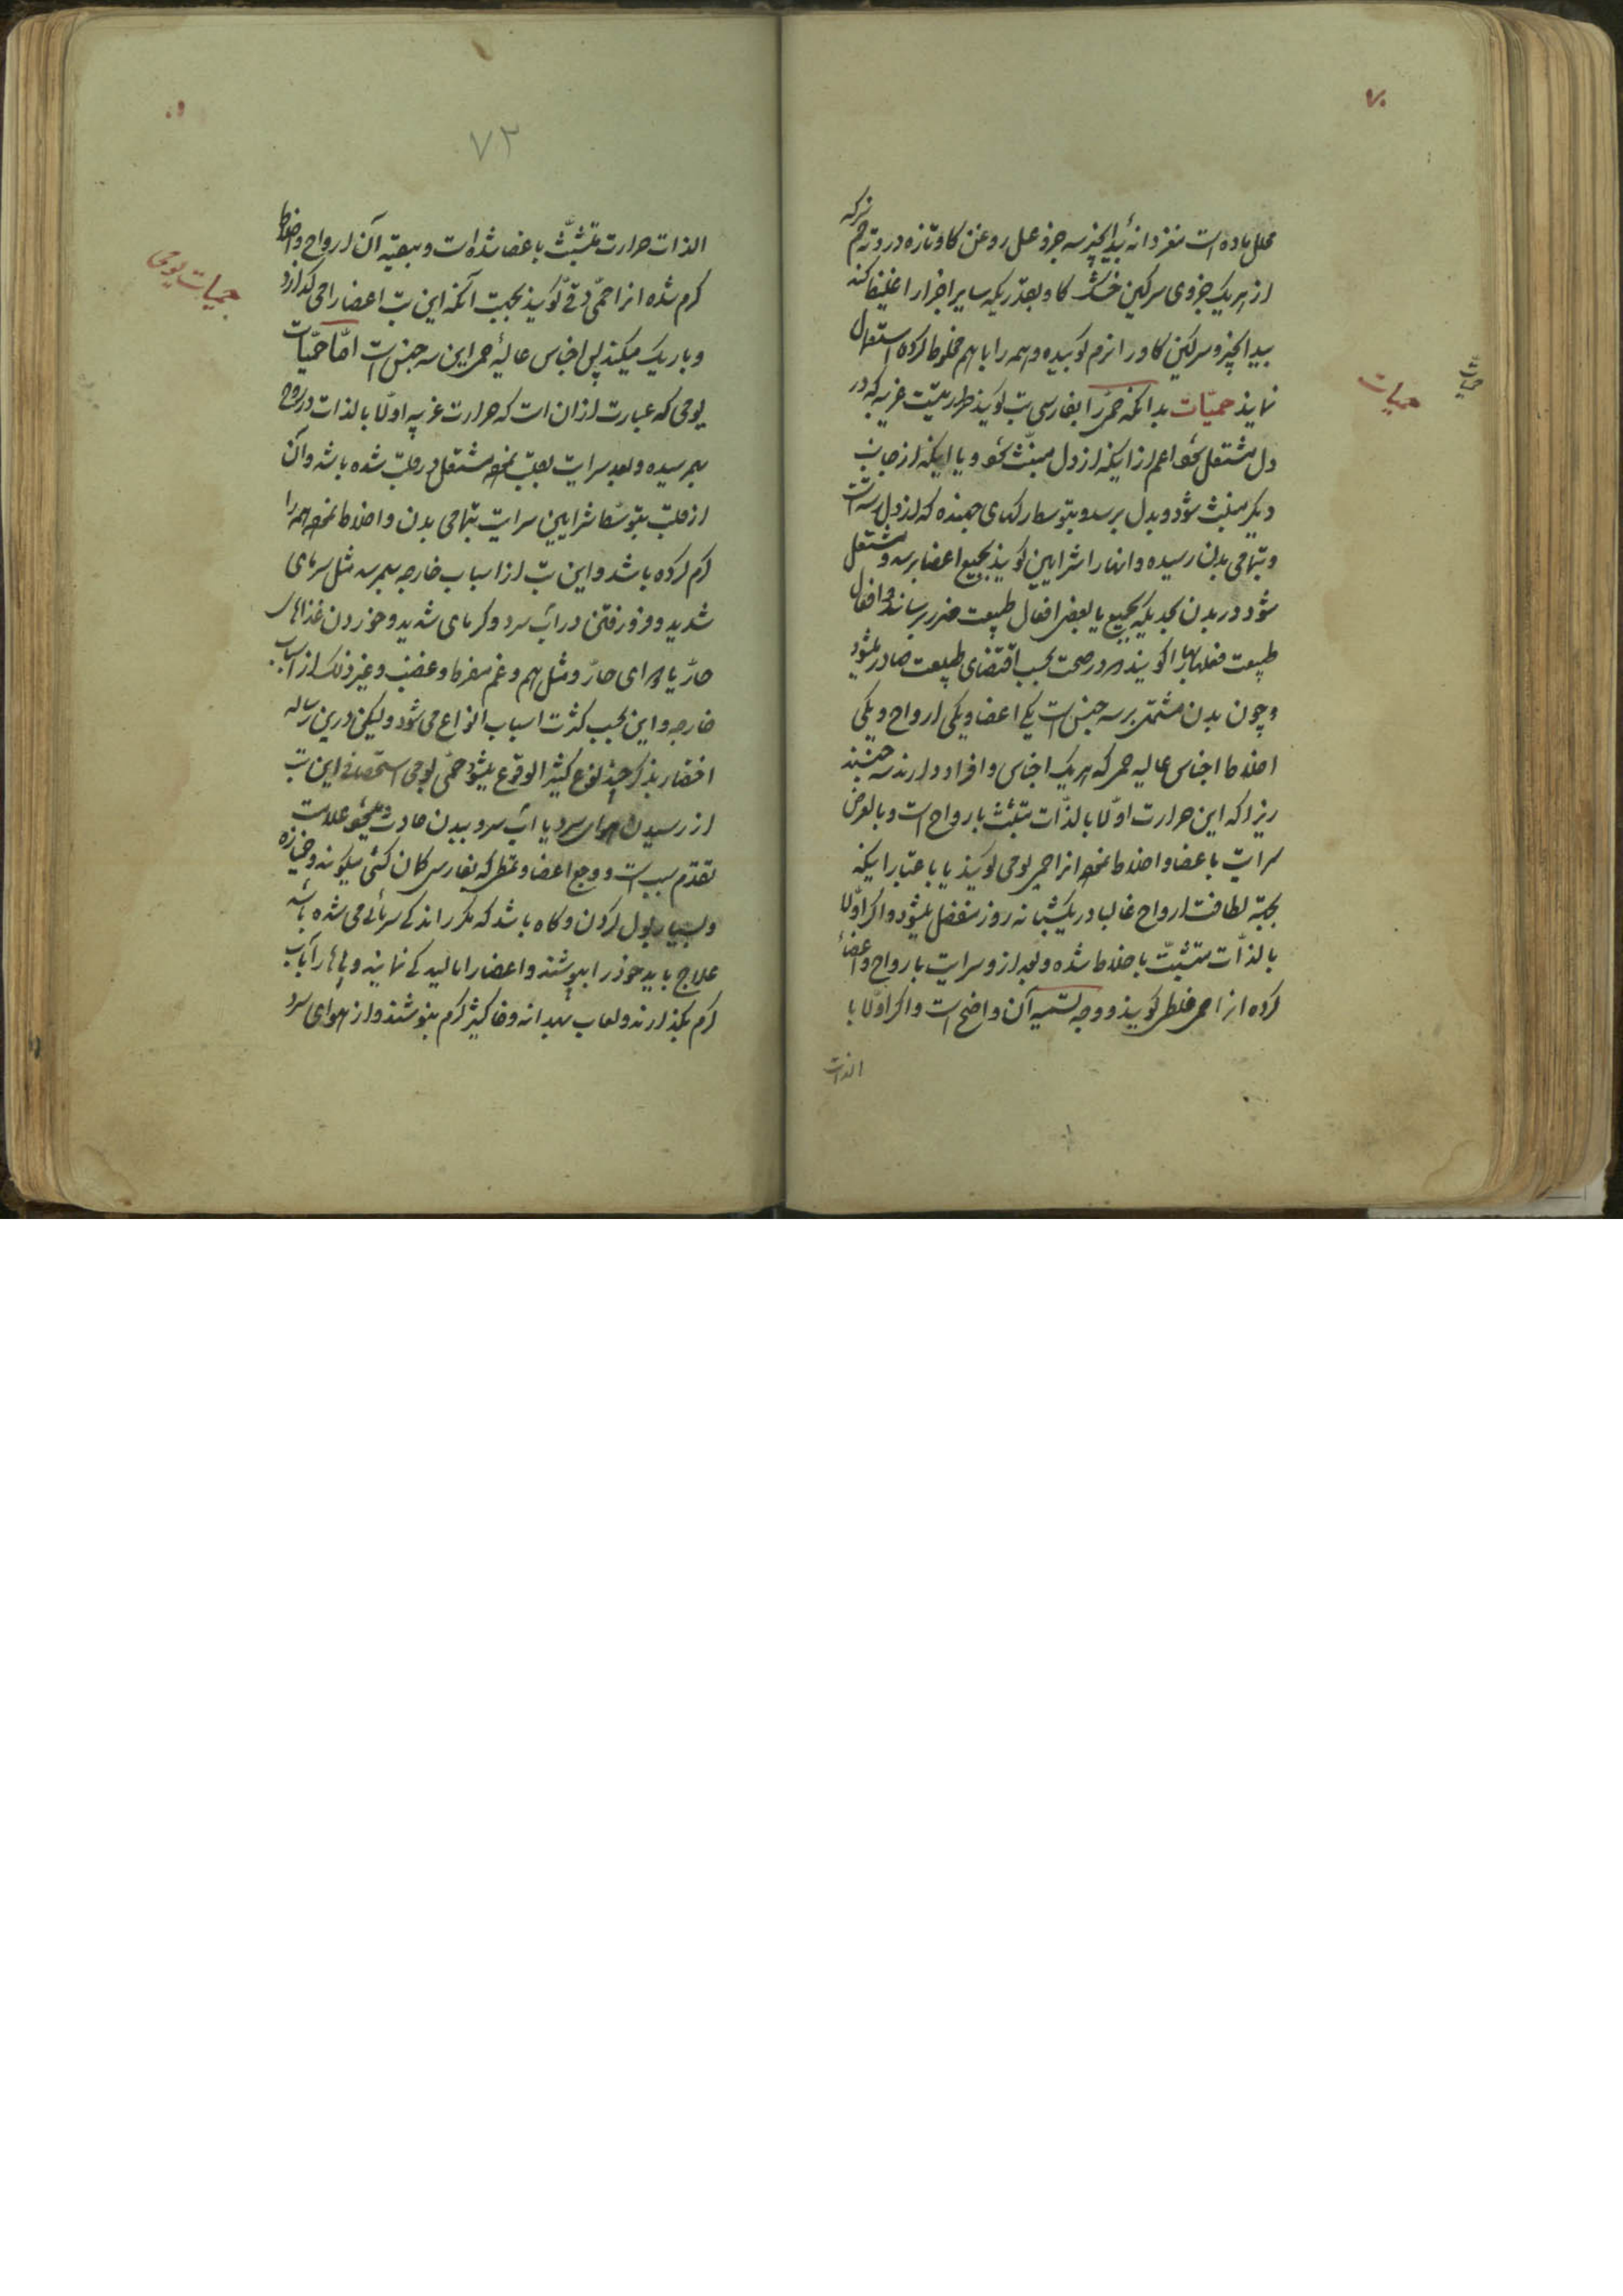 ۷۰
محلل ماده است مغز دانهٔ بیدانجیر سه جزو عسل روغن کاو تازه دردی خم سرکه
از هر یک جزوی سرکین خشک کاو بقدریکه سایر اجزا را غلیظ کند
بیدانجیر و سرکین کاو را نرم کوبیده و همه را با هم مخلوط کرده استعمال
نمایند حمیّات بدانکه حمّی را بفارسی تب کویند حرارتیست غریبه که در
دل مشتعل شود اعم از اینکه از دل منبث شود و یا اینکه از جانب
دیکر منبث شود و بدل برسد و بتوسط رکهای جهنده که از دل رسته است
و بتمامی بدن رسیده و انها را شرایین کویند بجمیع اعضا برسد و مشتعل
شود در بدن بحدیکه بجمیع یا بعضی افعال طبیعت ضرر برساند و افعال
طبیعت فعلهایی را کویند که در صحت بحسب اقتضای طبیعت صادر میشود
و چون بدن مشتمل بر سه جنس است یکی اعضا و یکی ارواح و یکی
اخلاط اجناس عالیه حمی که هر یک اجناس و افراد دارند سه جنسند
زیرا که این حرارت اوّلا بالذّات متشبث بارواح است و بالعرض
سرایت باعضا و اخلاط نموده انرا حمی یومی کویند یا باعتبار اینکه
بجهة لطافت ارواح غالبا در یکشبانه روز منفصل میشود و اکر اوّلا
بالذّات متشبّث باخلاط شده و بعد از و سرایت بارواح و اعضا
کرده انرا حمی خلطی کویند و وجه تسمیه آن واضح است و اکر اوّلا با
الذات
حمیات
حمیات
۷۲
الذات حرارت متشبّث باعضا شده است و بتبعیة آن ارواح و اخلاط
کرم شده انرا حمّی دقّ کویند بجهت آنکه این تب اعضا را می کدازد
و باریک میکند پس اجناس عالیهٔ حمی این سه جنس است امّا حمّیات
یومی که عبارت از ان است که حرارت غریبه اوّلا بالذات در روح
بهم رسیده و بعد سرایت بقلب نموده مشتعل در قلب شده باشد و آن
از قلب بتوسّط شرایین سرایت بتمامی بدن و اخلاط نموده همه را
کرم کرده باشد و این تب از اسباب خارجه بهم رسد مثل سرمای
شدید و فرو رفتن در آب سرد و کرمای شدید و خوردن غذاهای
حارّ یا هوای حارّ و مثل هم و غم مفرط و غضب و غیر ذلک از اسباب
خارجه و این بحسب کثرت اسباب انواع می شود و لیکن درین رساله
اختصار بذکر چند نوع کثیر الوقوع میشود حمّی یومی استحصافی این تب
از رسیدن هوای سرد یا آب سرد ببدن حادث میشود علامت
تقدّم سبب است و وجع اعضا و تمطی که بفارسی کمان کشی میکویند و خمیازه
و بسیار بول کردن و کاه باشد که مکرر اندکی سرمائی می شده باشد
علاج باید خود را بپوشند و اعضا را مالیدکی نمایند و پاها را در آب
کرم بکذارند و لعاب بهدانه و خاکشیر کرم بنوشند و از هوای سرد
حمیات یومی